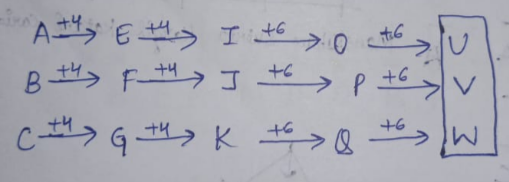 A +4 → E +4 → I +6 → O +6 → U
B +4 → F +4 → J +6 → P +6 → V
C +4 → G +4 → K +6 → Q +6 → W